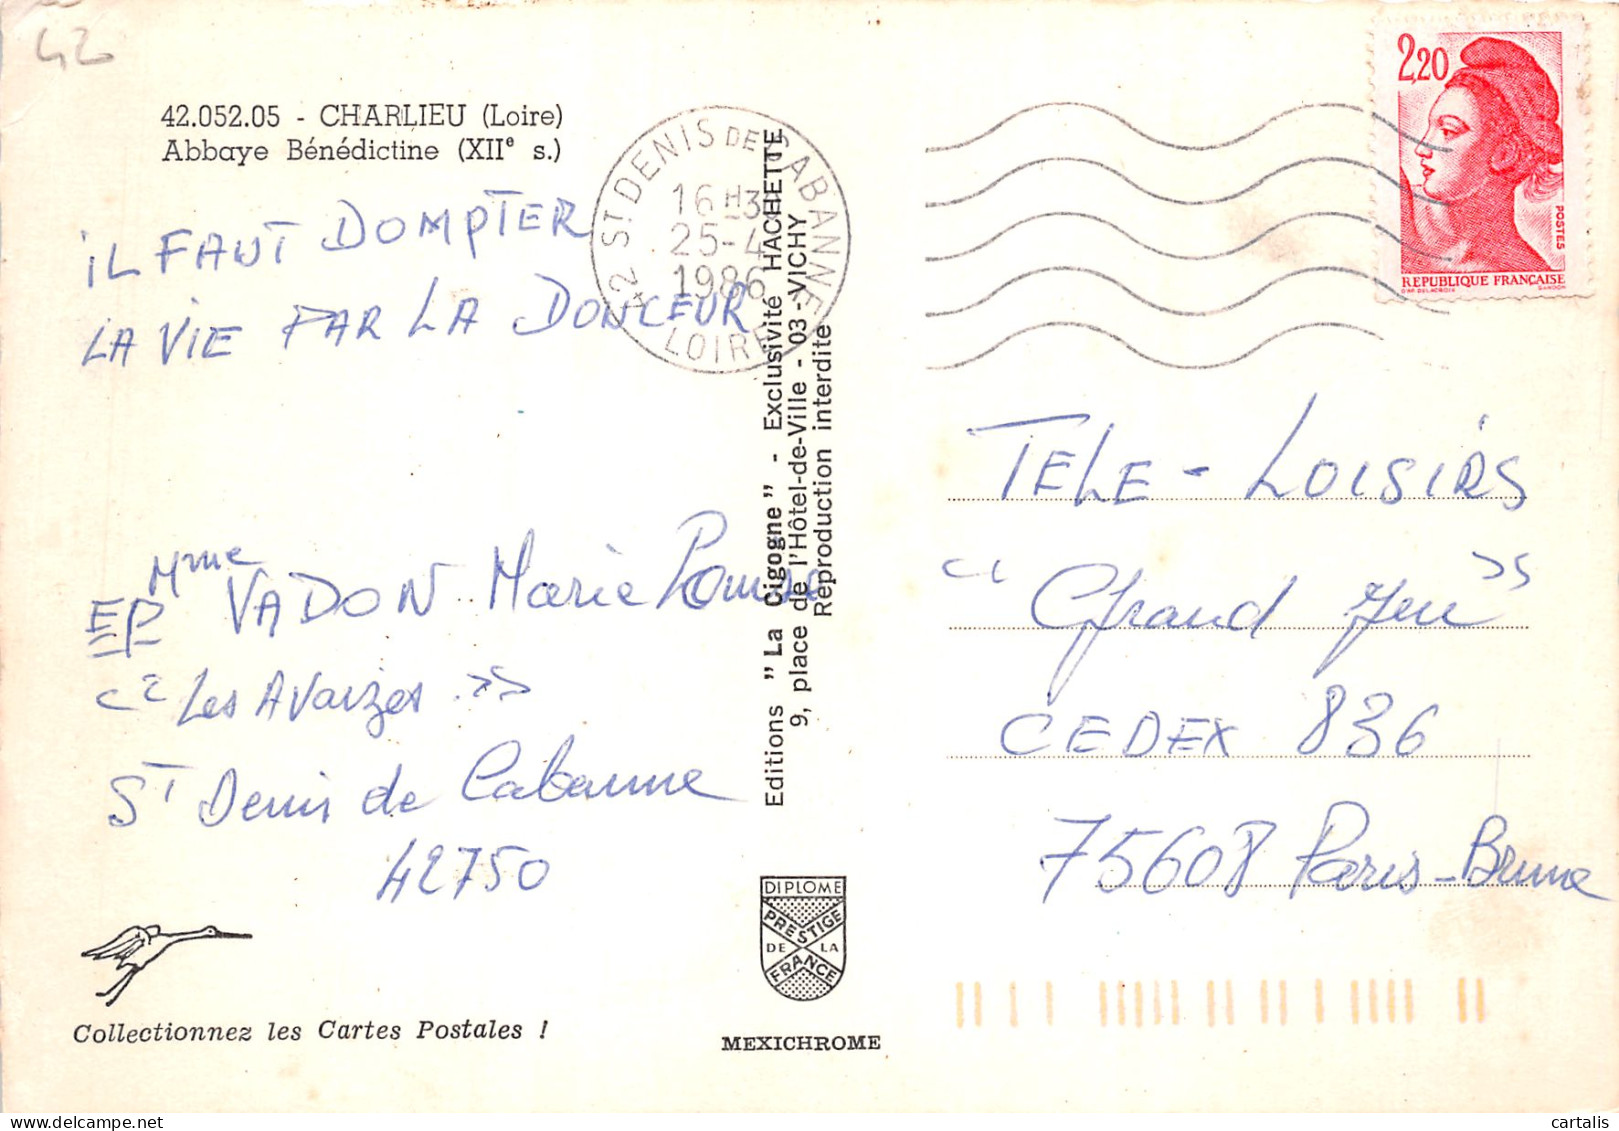 42
42.052.05 - CHARLIEU (Loire)
Abbaye Bénédictine (XIIe s.)
iL FAUT DOMPTER
LA VIE PAR LA DOUCEUR
Mme VADON Marie Louise
EP
"Les Avaizes"
St Denis de Cabanne
42750
Collectionnez les Cartes Postales !
42 ST DENIS DE CABANNE
16 H 3
25-4
1986
LOIRE
Editions "La Cigogne" - Exclusivité HACHETTE
9, place de l'Hôtel-de-Ville - 03 - VICHY
Reproduction interdite
DIPLOME
PRESTIGE
DE LA
FRANCE
MEXICHROME
2,20
POSTES
REPUBLIQUE FRANÇAISE
D'AP. DELACROIX GANDON
TELE - LOISIRS
"Grand Jeu"
CEDEX 836
75608 Paris-Brune
cartalis at delcampe.net